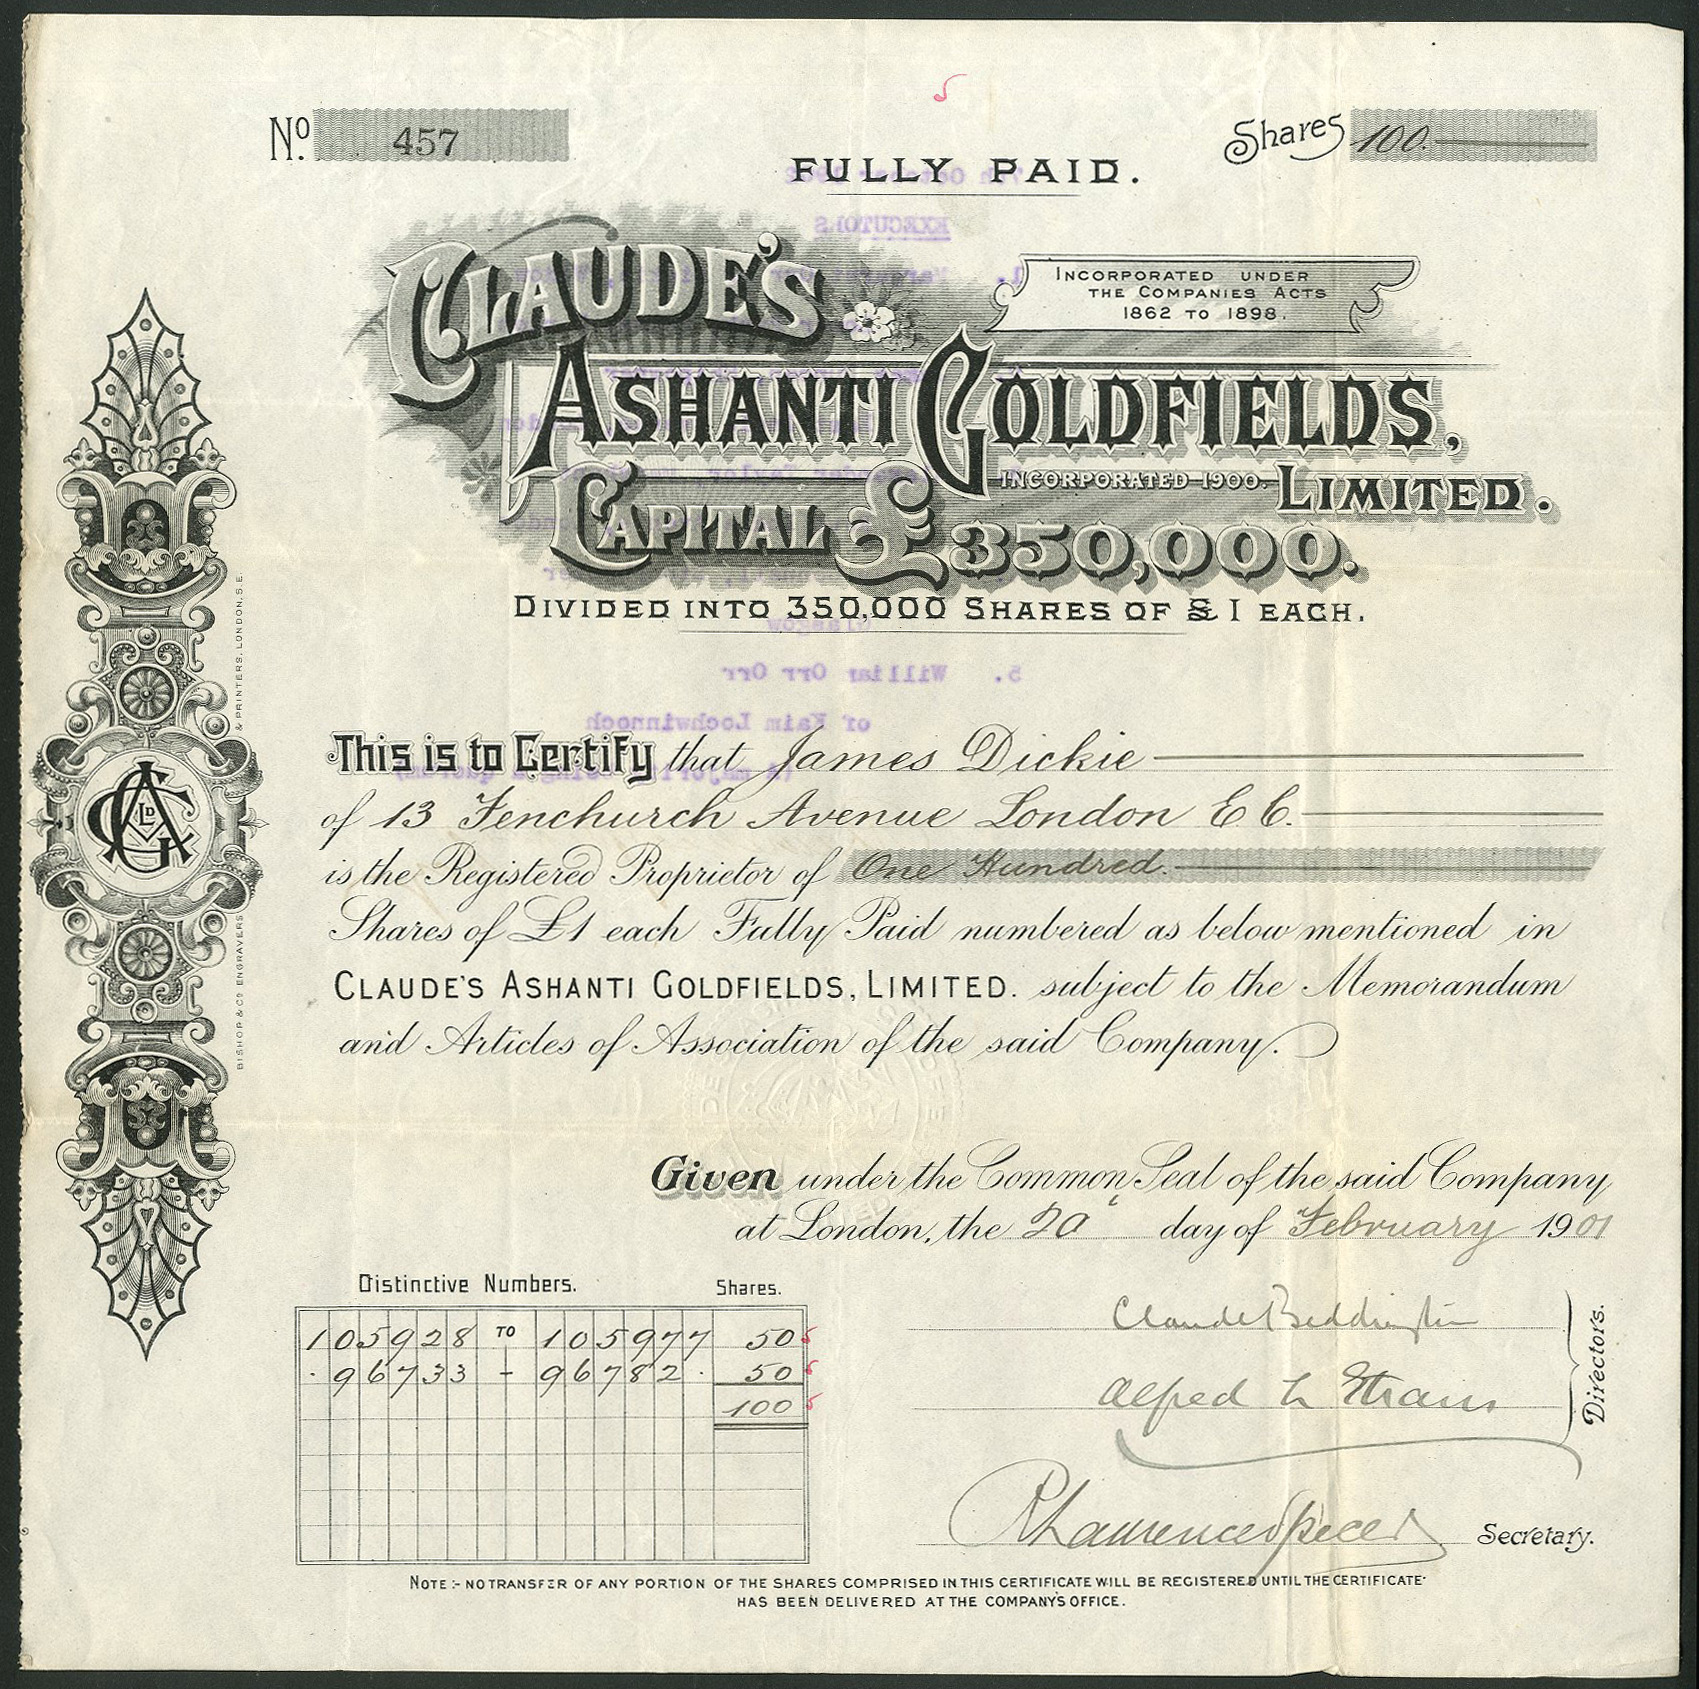 No. 457
Shares 100.
FULLY PAID.
CLAUDE'S
INCORPORATED UNDER
THE COMPANIES ACTS
1862 TO 1898.
ASHANTI GOLDFIELDS,
INCORPORATED 1900. LIMITED.
CAPITAL £350,000.
DIVIDED INTO 350,000 SHARES OF £1 EACH.
5. William Orr Orr
of Kaim Lochwinnoch
This is to Certify that James Dickie
of 13 Fenchurch Avenue London E C.
is the Registered Proprietor of One Hundred.
Shares of £1 each Fully Paid numbered as below mentioned in
CLAUDE'S ASHANTI GOLDFIELDS, LIMITED. subject to the Memorandum
and Articles of Association of the said Company.
Given under the Common Seal of the said Company
at London, the 20 day of February 1901
Distinctive Numbers. Shares.
105928 TO 105977 50
96733 - 96782 50
100
Claude Beddington
Alfred L
Directors.
Secretary.
NOTE:- NO TRANSFER OF ANY PORTION OF THE SHARES COMPRISED IN THIS CERTIFICATE WILL BE REGISTERED UNTIL THE CERTIFICATE
HAS BEEN DELIVERED AT THE COMPANY'S OFFICE.
BISHOP & CO ENGRAVERS & PRINTERS, LONDON, S.E.
EXECUTORS